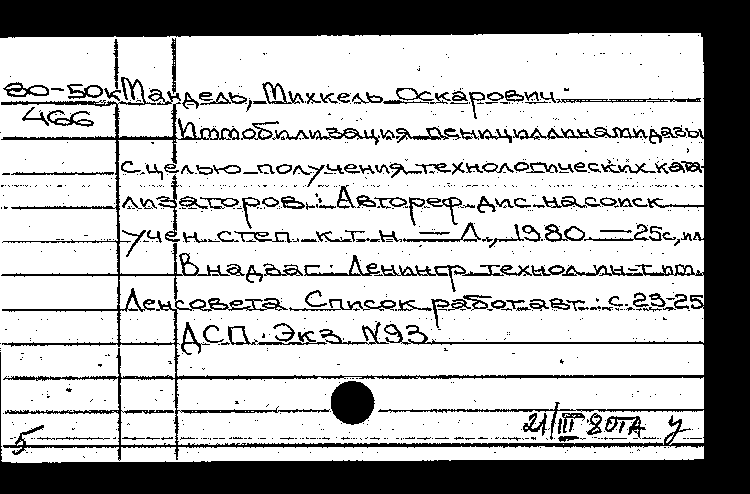 80-50к Мандель, Михкель Оскарович.
466
Иммобилизация пенициллинамидазы
с целью получения технологических ката-
лизаторов: Автореф. дис. на соиск.
учен. степ. к.т.н. — Л., 1980. — 25 с., ил.
В надзаг.: Ленингр. технол. ин-т им.
Ленсовета. Список работ авт.: с. 23-25
ДСП. Экз. №93.
21/III 80 ТА У
5